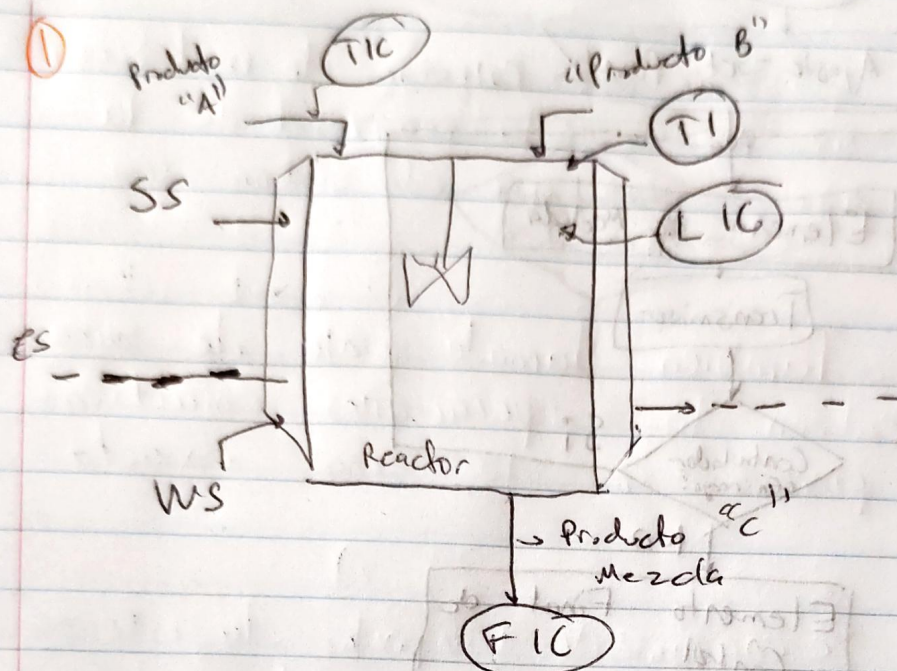 1
TIC
Producto
"A"
"Producto B"
TI
SS
LIC
ES
Reactor
WS
Producto "C"
Mezcla
FIC